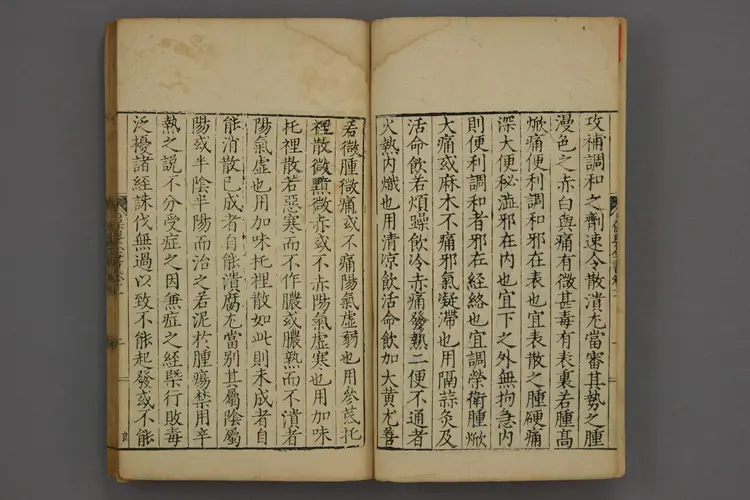 攻補調和之劑速令散潰尤當審其勢之腫
漫色之赤白與痛有微甚毒有表裏若腫高
焮痛便利調和邪在表也宜表散之腫硬痛
深大便秘澁邪在內也宜下之外無拘急內
則便利調和者邪在経絡也宜調榮衛腫焮
大痛或麻木不痛邪氣凝滯也用隔蒜灸及
活命飲若煩躁飲冷赤痛發熱二便不通者
火熱內熾也用清凉飲活命飲加大黄尤善
若微腫微痛或不痛陽氣虛弱也用參芪托
裡散微黯微赤或不赤陽氣虛寒也用加味
托裡散若惡寒而不作膿或膿熟而不潰者
陽氣虛也用加味托裡散如此則未成者自
能消散已成者自能潰腐尤當别其屬陰屬
陽或半陰半陽而治之若泥於腫瘍禁用辛
熱之説不分受症之因無症之経槩行敗毒
泛擾諸経誅伐無過以致不能起發或不能